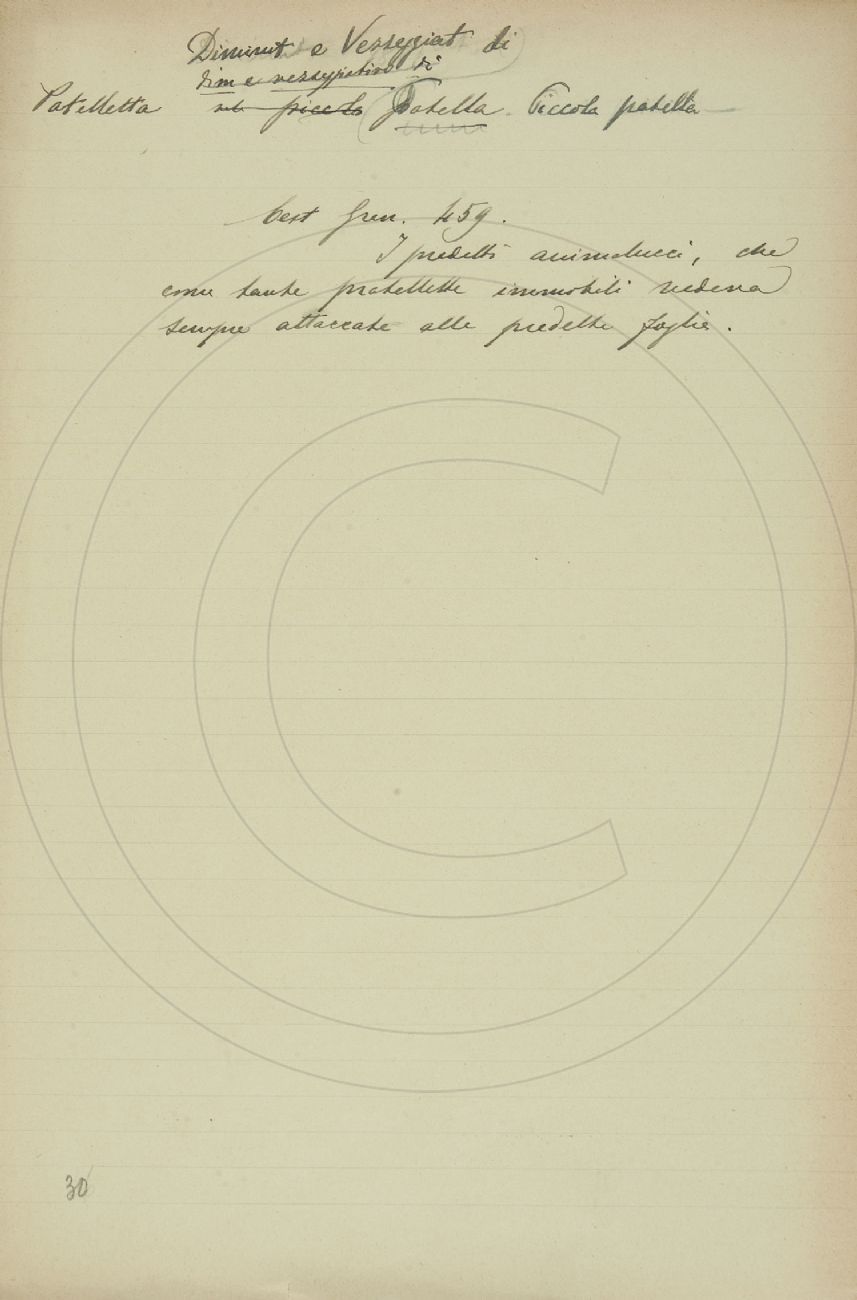 Diminut e Vezzeggiat di
dim e vezzeggiativo di
Patelletta piccola Patella. Piccola patella
Cest Gen. 459.
I predetti animalucci, che
come tante patellette immobili vedeva
sempre attaccate alle predette foglie.
30